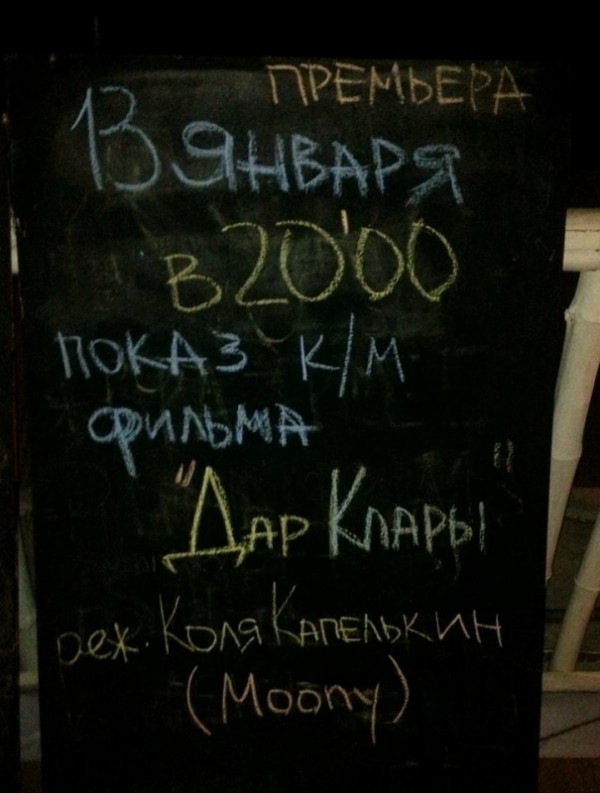 ПРЕМЬЕРА
13 ЯНВАРЯ
в 20'00
показ к/м
фильма
"Дар Клары"
реж. Коля Капелькин
(Moony)